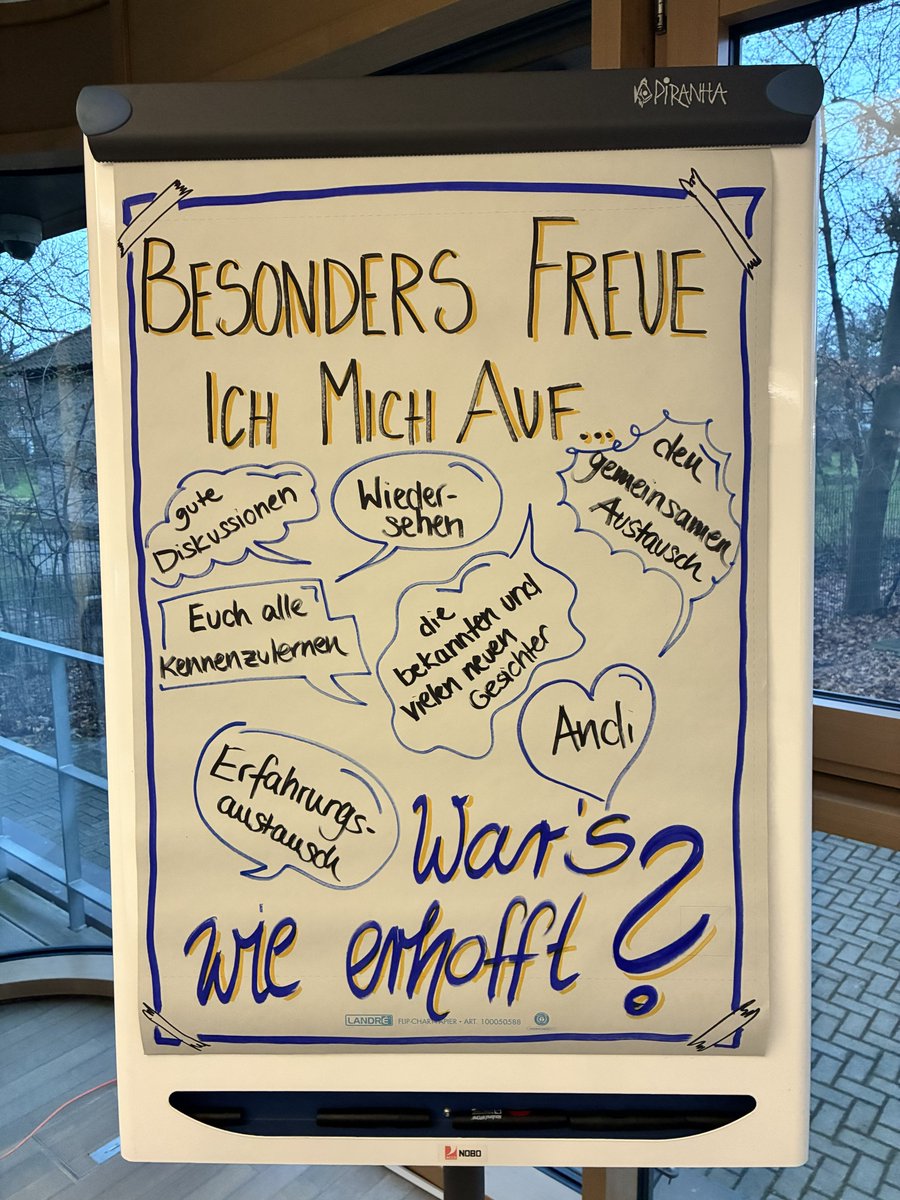 PIRANHA
BESONDERS FREUE
ICH MICH AUF...
gute
Diskussionen
Wieder-
sehen
den
gemeinsamen
Austausch
Euch alle
kennenzulernen
die
bekannten und
vielen neuen
Gesichter
Andi
Erfahrungs-
austausch
War's
wie erhofft?
LANDRÉ FLIP-CHART-PAPIER • ART. 100050588
NOBO